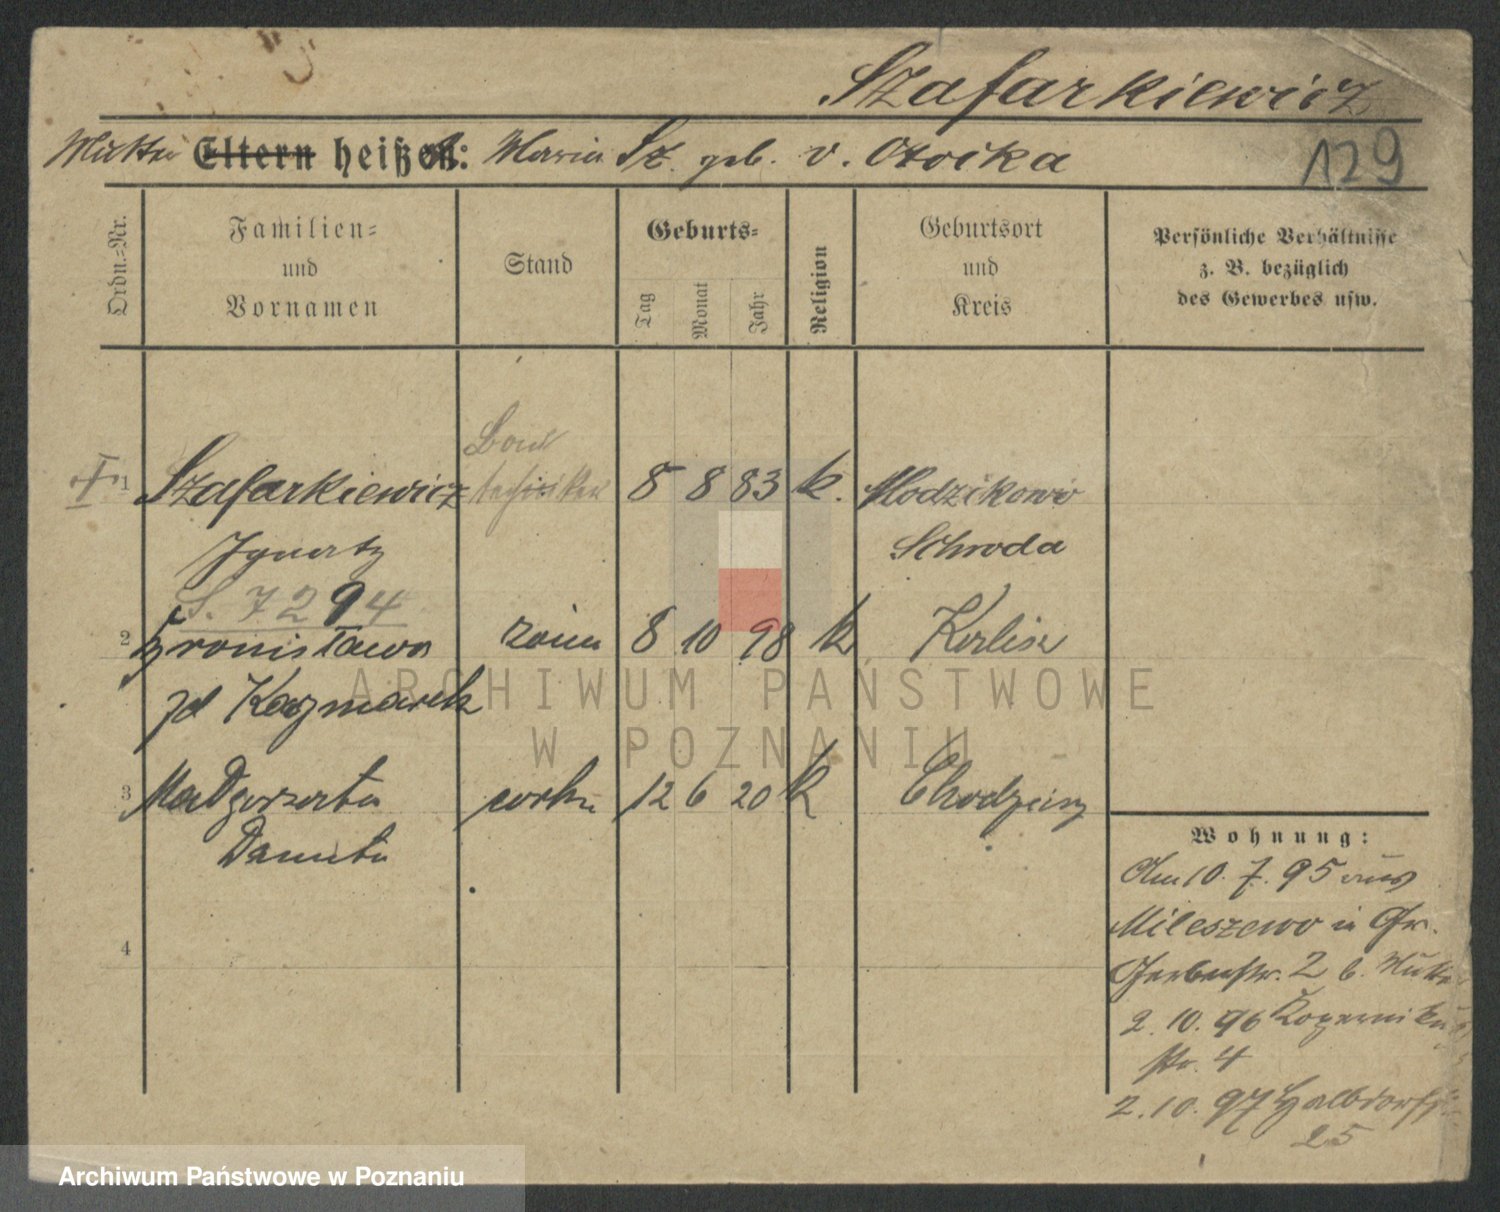 Szafarkiewicz
Mutter Eltern heißen: Maria Sz. geb. v. Otocka
129
Ordn.-Nr.
Familien-
und
Vornamen
Stand
Geburts-
Tag
Monat
Jahr
Religion
Geburtsort
und
Kreis
Persönliche Verhältnisse
z. B. bezüglich
des Gewerbes usw.
Bau
techniker
1 Szafarkiewicz 8 8 83 k. Włodzikowo
Ignatz Schroda
S. 7294
2 Bronisława żona 8 10 98 k
zd Kaczmarek
3 Małgorzata córka 12 6 20 k Chodzież
Danuta
4
Wohnung:
Am 10. 7. 95 aus
Mileszewo in Gr.
Gerberstr. 2 b. Mutter
2. 10. 96 Kopernikus
str. 4
2. 10. 97 Halbdorfstr
25
ARCHIWUM PAŃSTWOWE
W POZNANIU
Archiwum Państwowe w Poznaniu